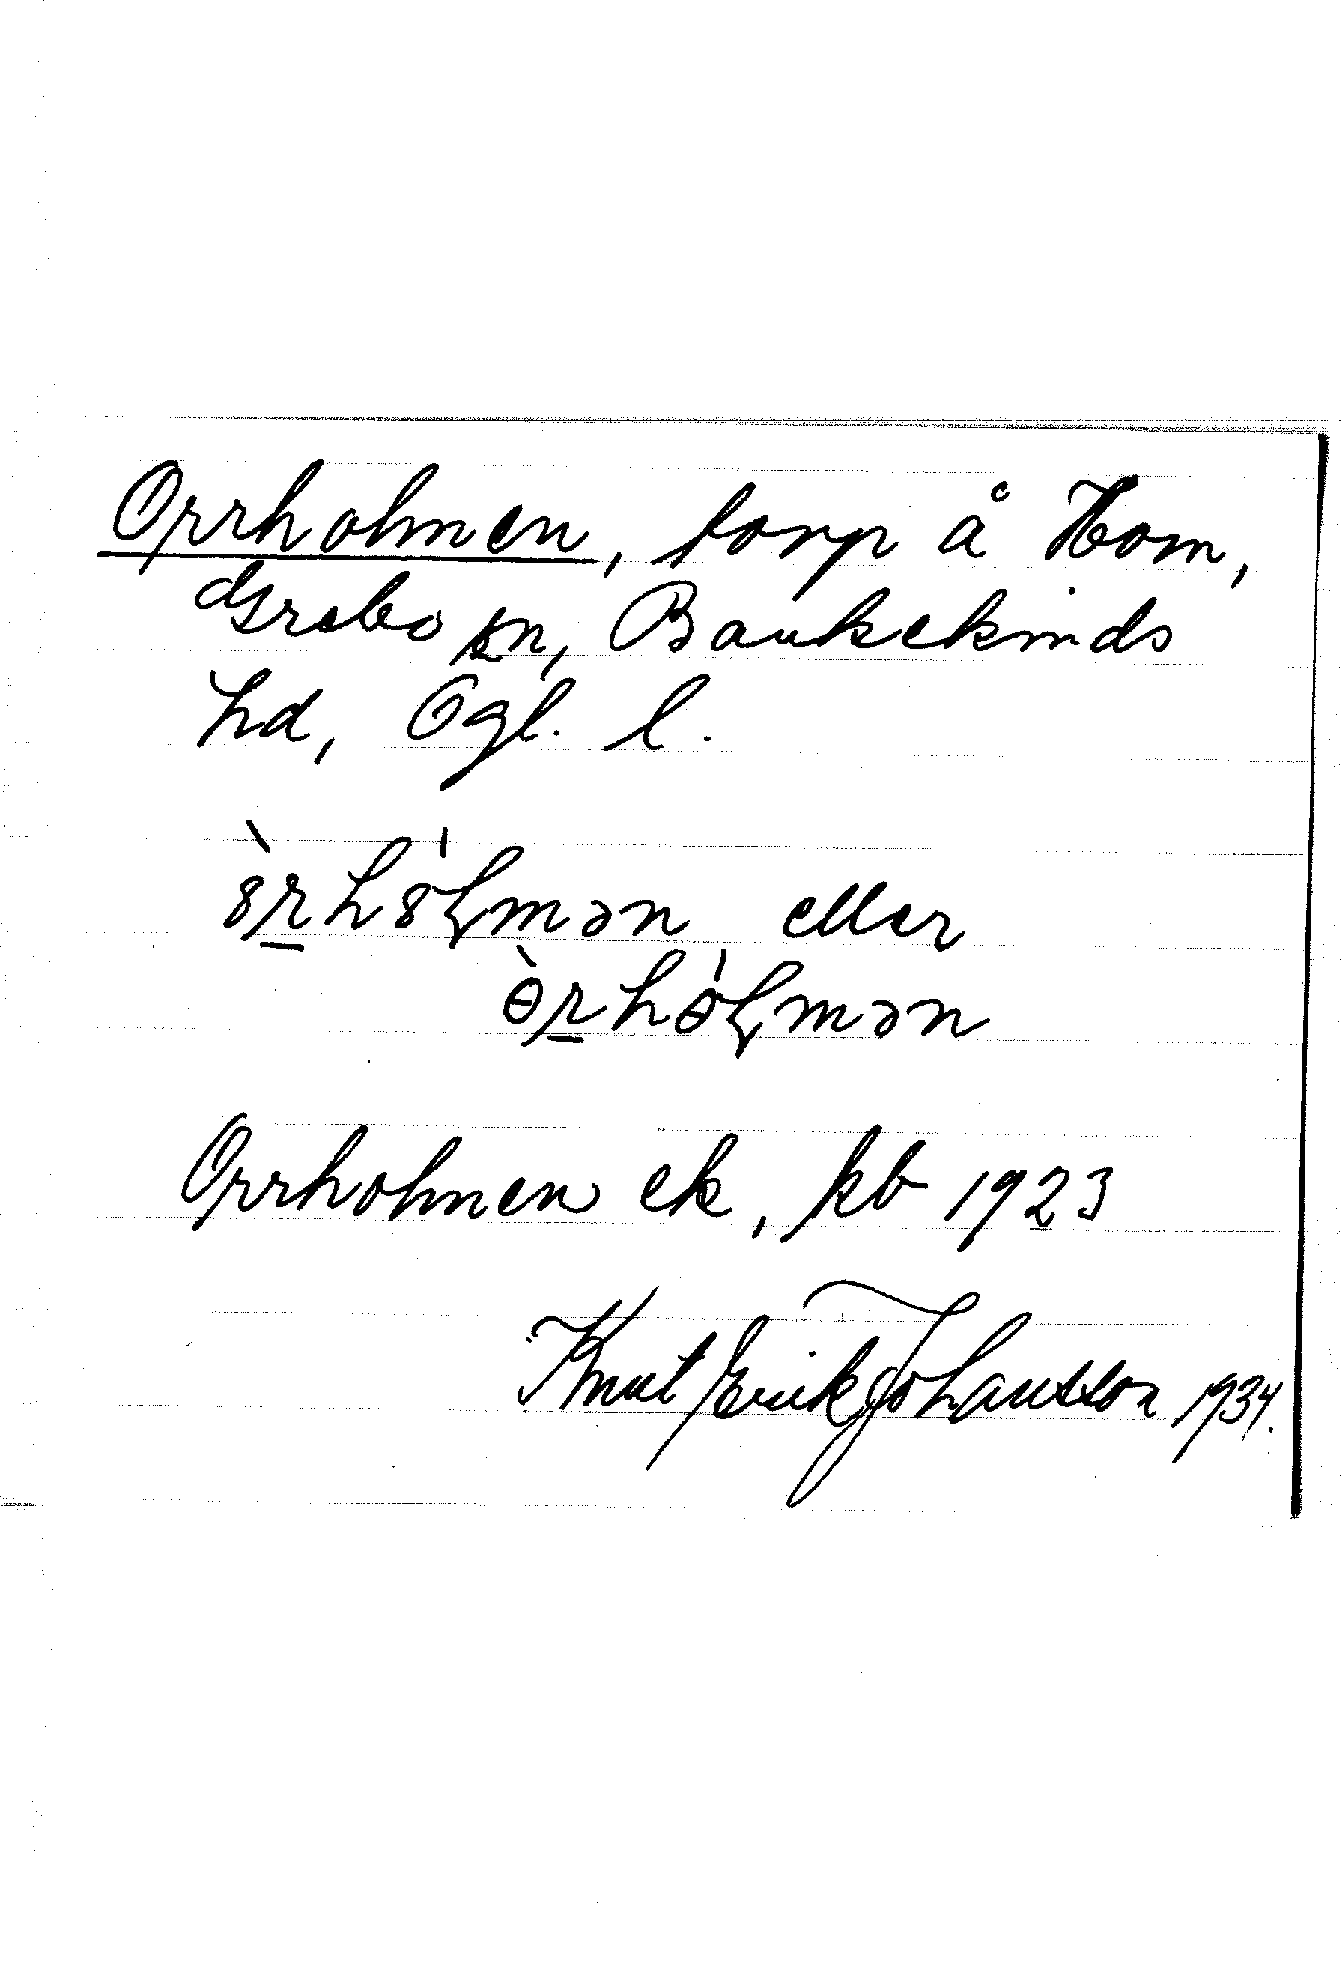 Orrholmen, torp å Hom,
Grebo sn, Bankekinds
hd, Ögl. l.
ȣ̀rhȣ́ɭmən eller
ɵ̀rhɵ́ɭmən
Orrholmen ek, kb 1923
Knut Erik Johansson 1934.